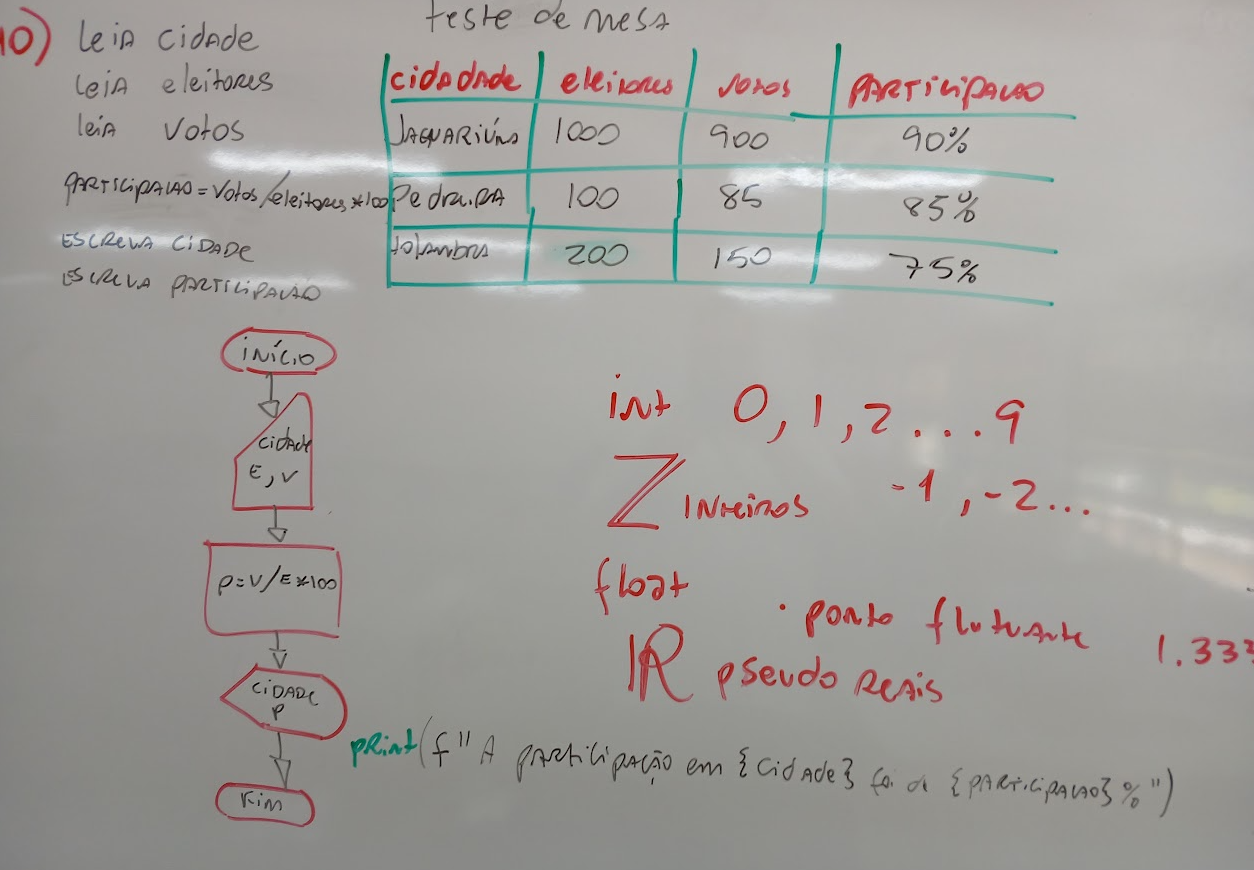 10) leia cidade
leia eleitores
leia votos
participacao = votos/eleitores*100
ESCREVA CIDADE
ESCREVA PARTICIPACAO
teste de mesa
cidadade eleitores votos PARTICIPACAO
JAGUARIÚNA 1000 900 90%
Pedreira 100 85 85%
Holambra 200 150 75%
INÍCIO
cidade
E, V
P=V/E*100
CIDADE
P
FIM
int 0, 1, 2 ... 9
Z INteiros -1, -2...
float
. ponto flutuante 1.333
IR pseudo reais
print(f"A participação em {cidade} foi de {participacao}%")